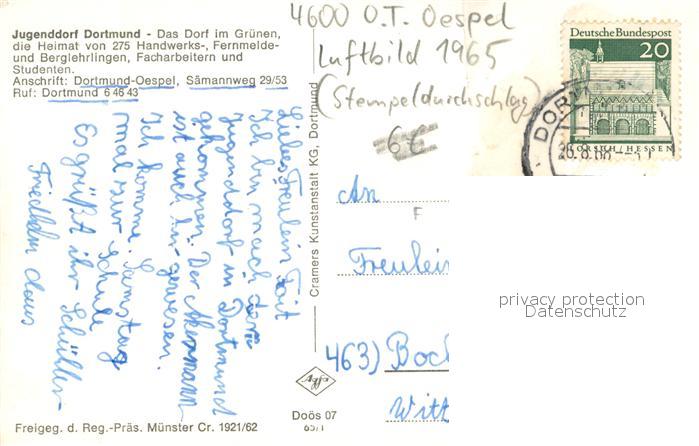 Jugenddorf Dortmund - Das Dorf im Grünen,
die Heimat von 275 Handwerks-, Fernmelde-
und Berglehrlingen, Facharbeitern und
Studenten.
Anschrift: Dortmund-Oespel, Sämannweg 29/53
Ruf: Dortmund 6 46 43
4600 O.T. Oespel
Luftbild 1965
(Stempeldurchschlag)
6€
Deutsche Bundespost
20
LORSCH/HESSEN
Liebes Freulein
Ich bin nach dem
Jugenddorf in Dortmund
gekommen. Der Akermann
ist auch hir gewesen.
Ich komme Samstag
mal zur Schule
Es grüßt ihr Schüller
Friedhelm
Cramers Kunstanstalt KG, Dortmund
An
F
Freulein
463) Boc
Witt
privacy protection
Datenschutz
Agfa
Doös 07
65/1
Freigeg. d. Reg.-Präs. Münster Cr. 1921/62